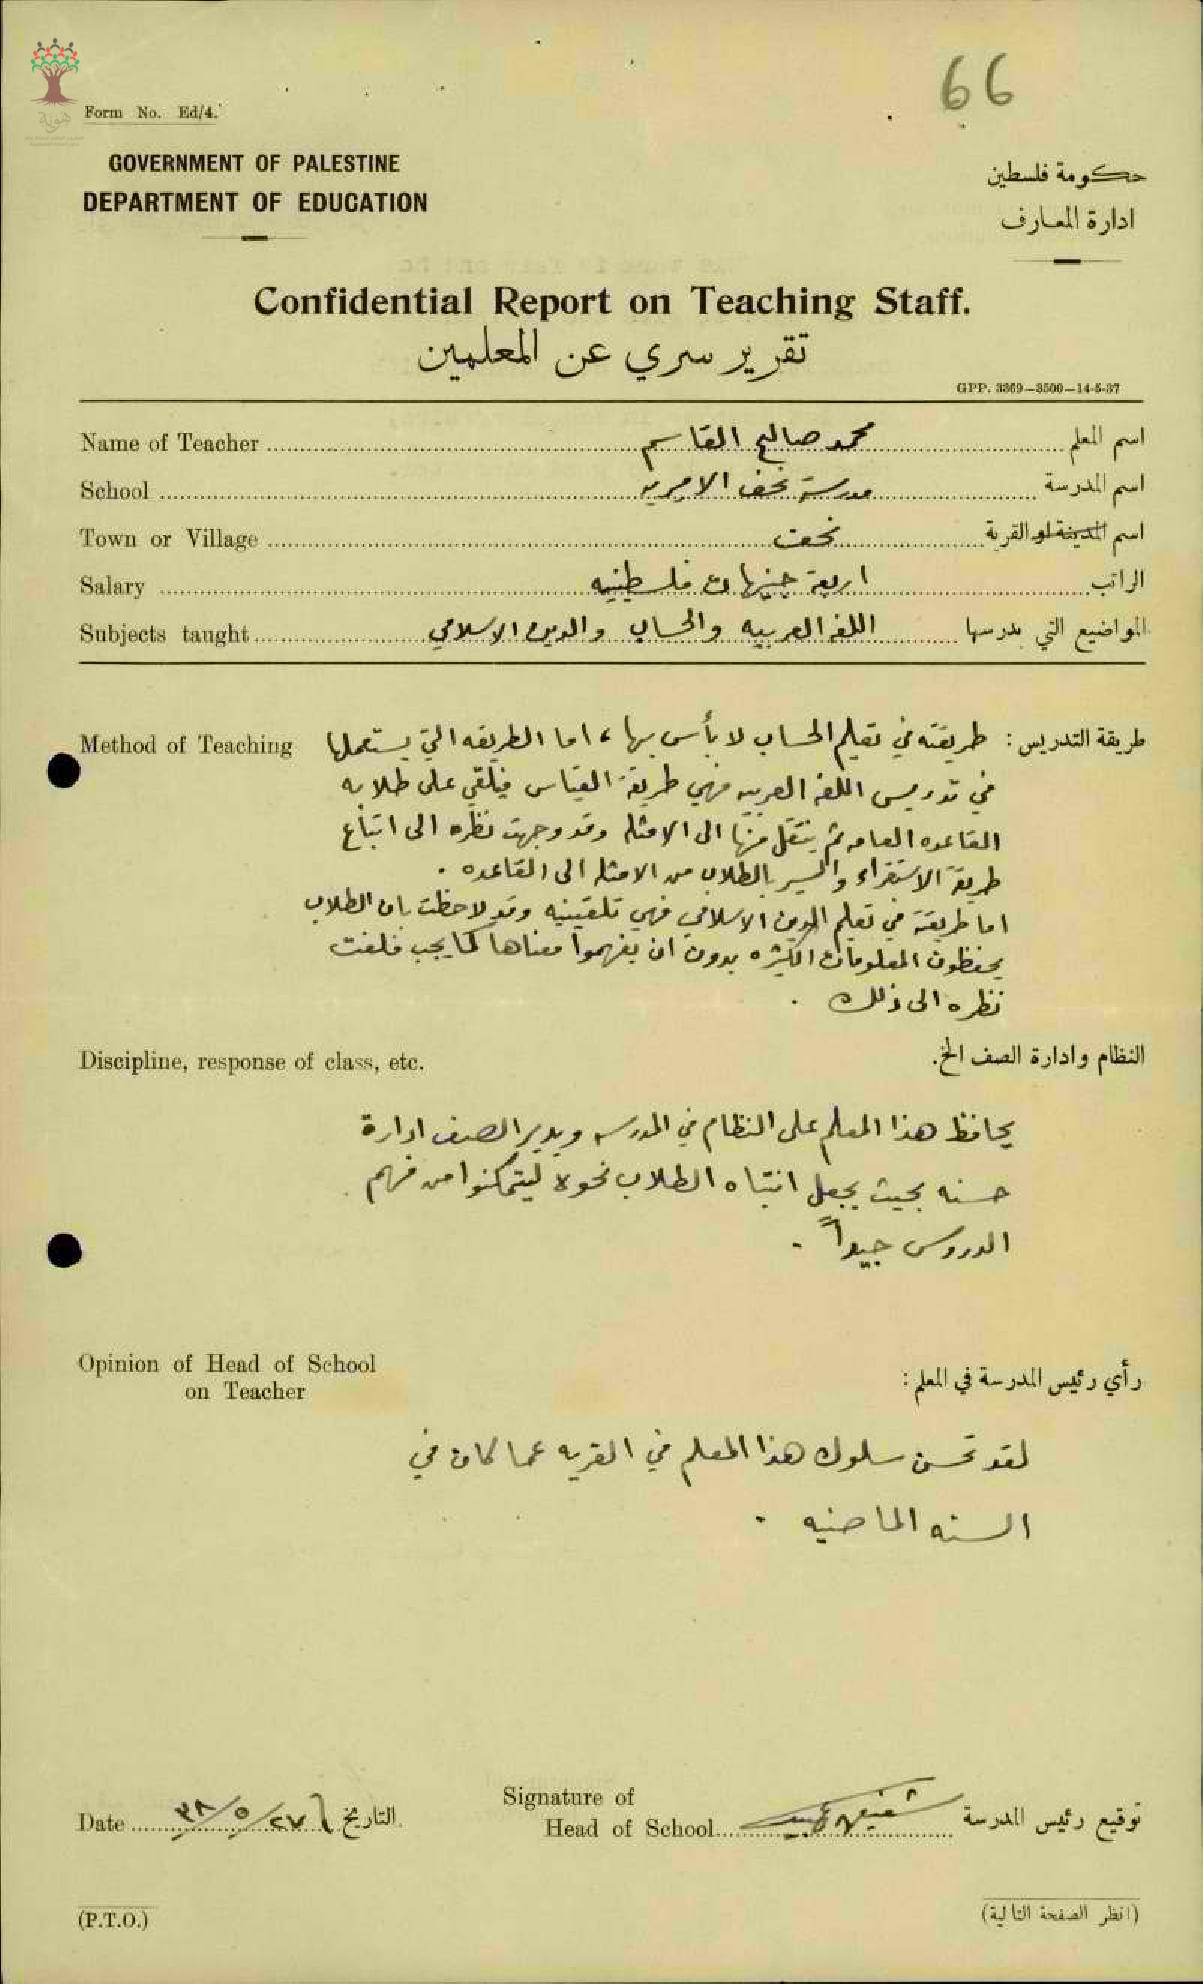 66
هوية
Form No. Ed/4.
GOVERNMENT OF PALESTINE
DEPARTMENT OF EDUCATION
حكومة فلسطين
ادارة المعارف
Confidential Report on Teaching Staff.
تقرير سري عن المعلمين
GPP. 3369—3500—14-5-37
Name of Teacher محمد صالح القاسم اسم المعلم
School مدرسة نحف الاميرية اسم المدرسة
Town or Village نحف اسم المدينة او القرية
Salary اربعة جنيهات فلسطينيه الراتب
Subjects taught اللغه العربيه والحساب والدين الاسلامي المواضيع التي يدرسها
Method of Teaching طريقة التدريس : طريقته في تعليم الحساب لا بأس بها ، اما الطريقه التي يستعملها
في تدريس اللغه العربيه فهي طريقة القياس فيلقي على طلابه
القاعده العامه ثم ينتقل منها الى الامثله وقد وجهت نظره الى اتباع
طريقة الاستقراء والسير بالطلاب من الامثله الى القاعده .
اما طريقته في تعليم الدين الاسلامي فهي تلقينيه وقد لاحظت بان الطلاب
يحفظون المعلومات الكثيره بدون ان يفهموا معناها كما يجب فلفت
نظره الى ذلك .
Discipline, response of class, etc. النظام وادارة الصف الخ.
يحافظ هذا المعلم على النظام في المدرسه ويدير الصف ادارة
حسنه بحيث يجعل انتباه الطلاب نحوه ليتمكنوا من فهم
الدروس جيداً .
Opinion of Head of School
on Teacher
رأي رئيس المدرسة في المعلم :
لقد تحسن سلوك هذا المعلم في القريه عما كان في
السنه الماضيه .
Signature of
Head of School شفيق توقيع رئيس المدرسة
Date ٢٧/٥/٣٨ التاريخ
(P.T.O.)
(انظر الصفحة التالية)